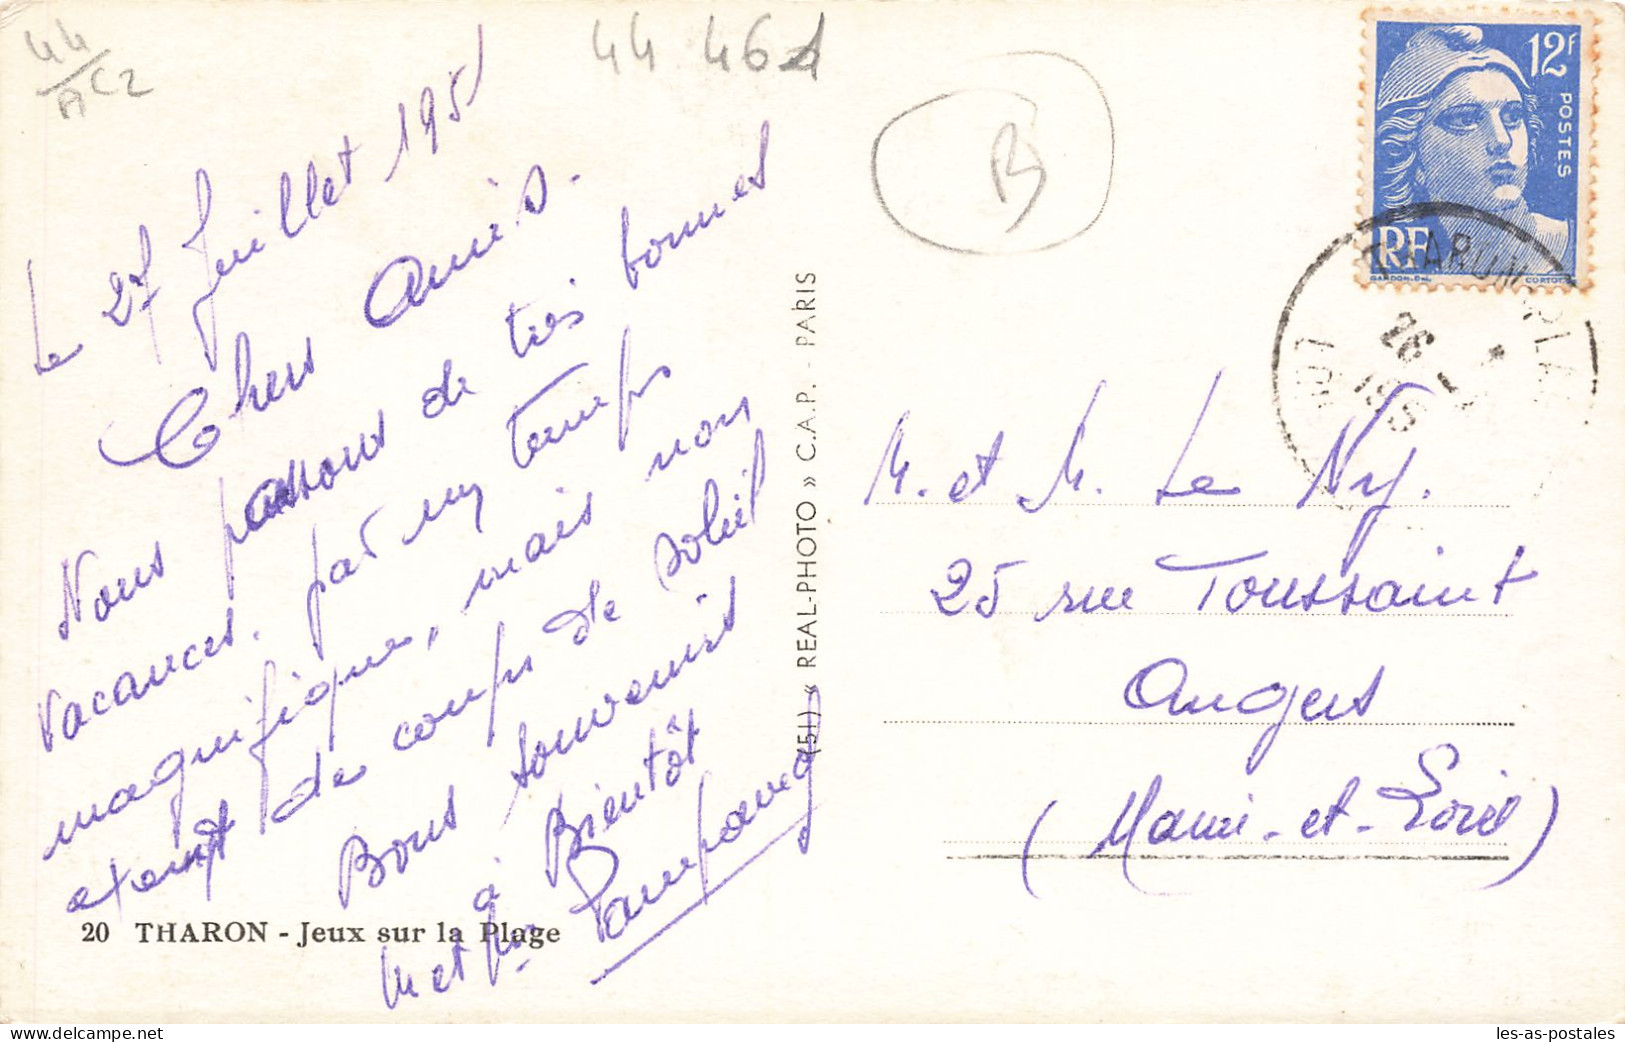 44
AC2
44 464
B
12F
POSTES
RF
GANDON.DEL.
CORTOT
THARON-PLA
LOI
26
195
Le 27 Juillet 1951
Chers Amis.
Nous passons de très bonnes
Vacances. par un temps
magnifique, mais non
exempt de coups de soleil
Bons souvenirs
à Bientôt
M et Me
20 THARON - Jeux sur la Plage
(51) « REAL-PHOTO » C.A.P. - PARIS
M. et M. Le Ny.
25 rue Toussaint
Angers
(Maine-et-Loire)
les-as-postales.com